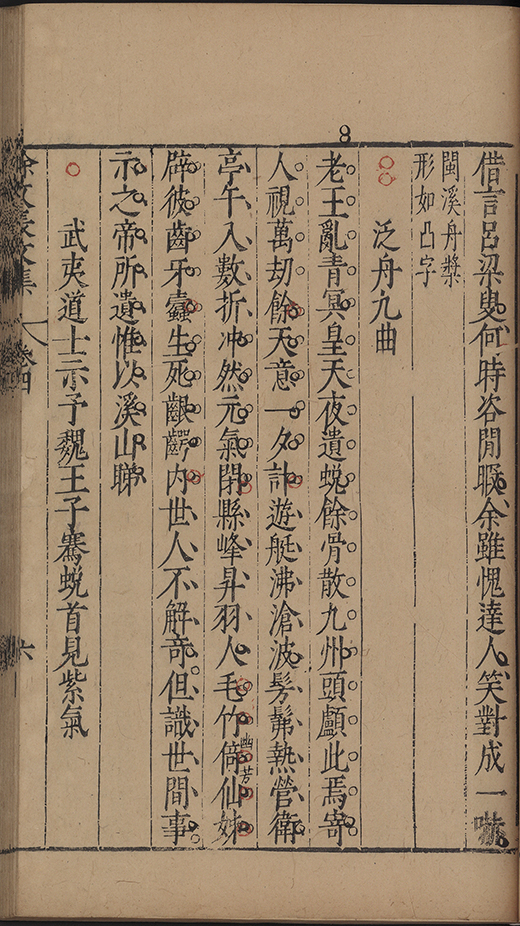 8
借言呂梁叟何時咨閒暇余雖愧達人笑對成一
閩溪舟槳
形如凸字
泛舟九曲
老王亂青冥皇天夜遺蛻餘骨散九州頭顱此焉寄
人視萬劫餘天意一夕計遊艇沸滄波髣髴熱營衛
亭午入數折冲然元氣閉縣峰昇羽人毛竹倚仙姊
幽芳
辟彼齒牙蠹生死齦齶内世人不解竒但識世間事
示之帝所遺惟以溪山睇
武夷道士示予魏王子騫蛻首見紫氣
徐文長文集
卷四
六